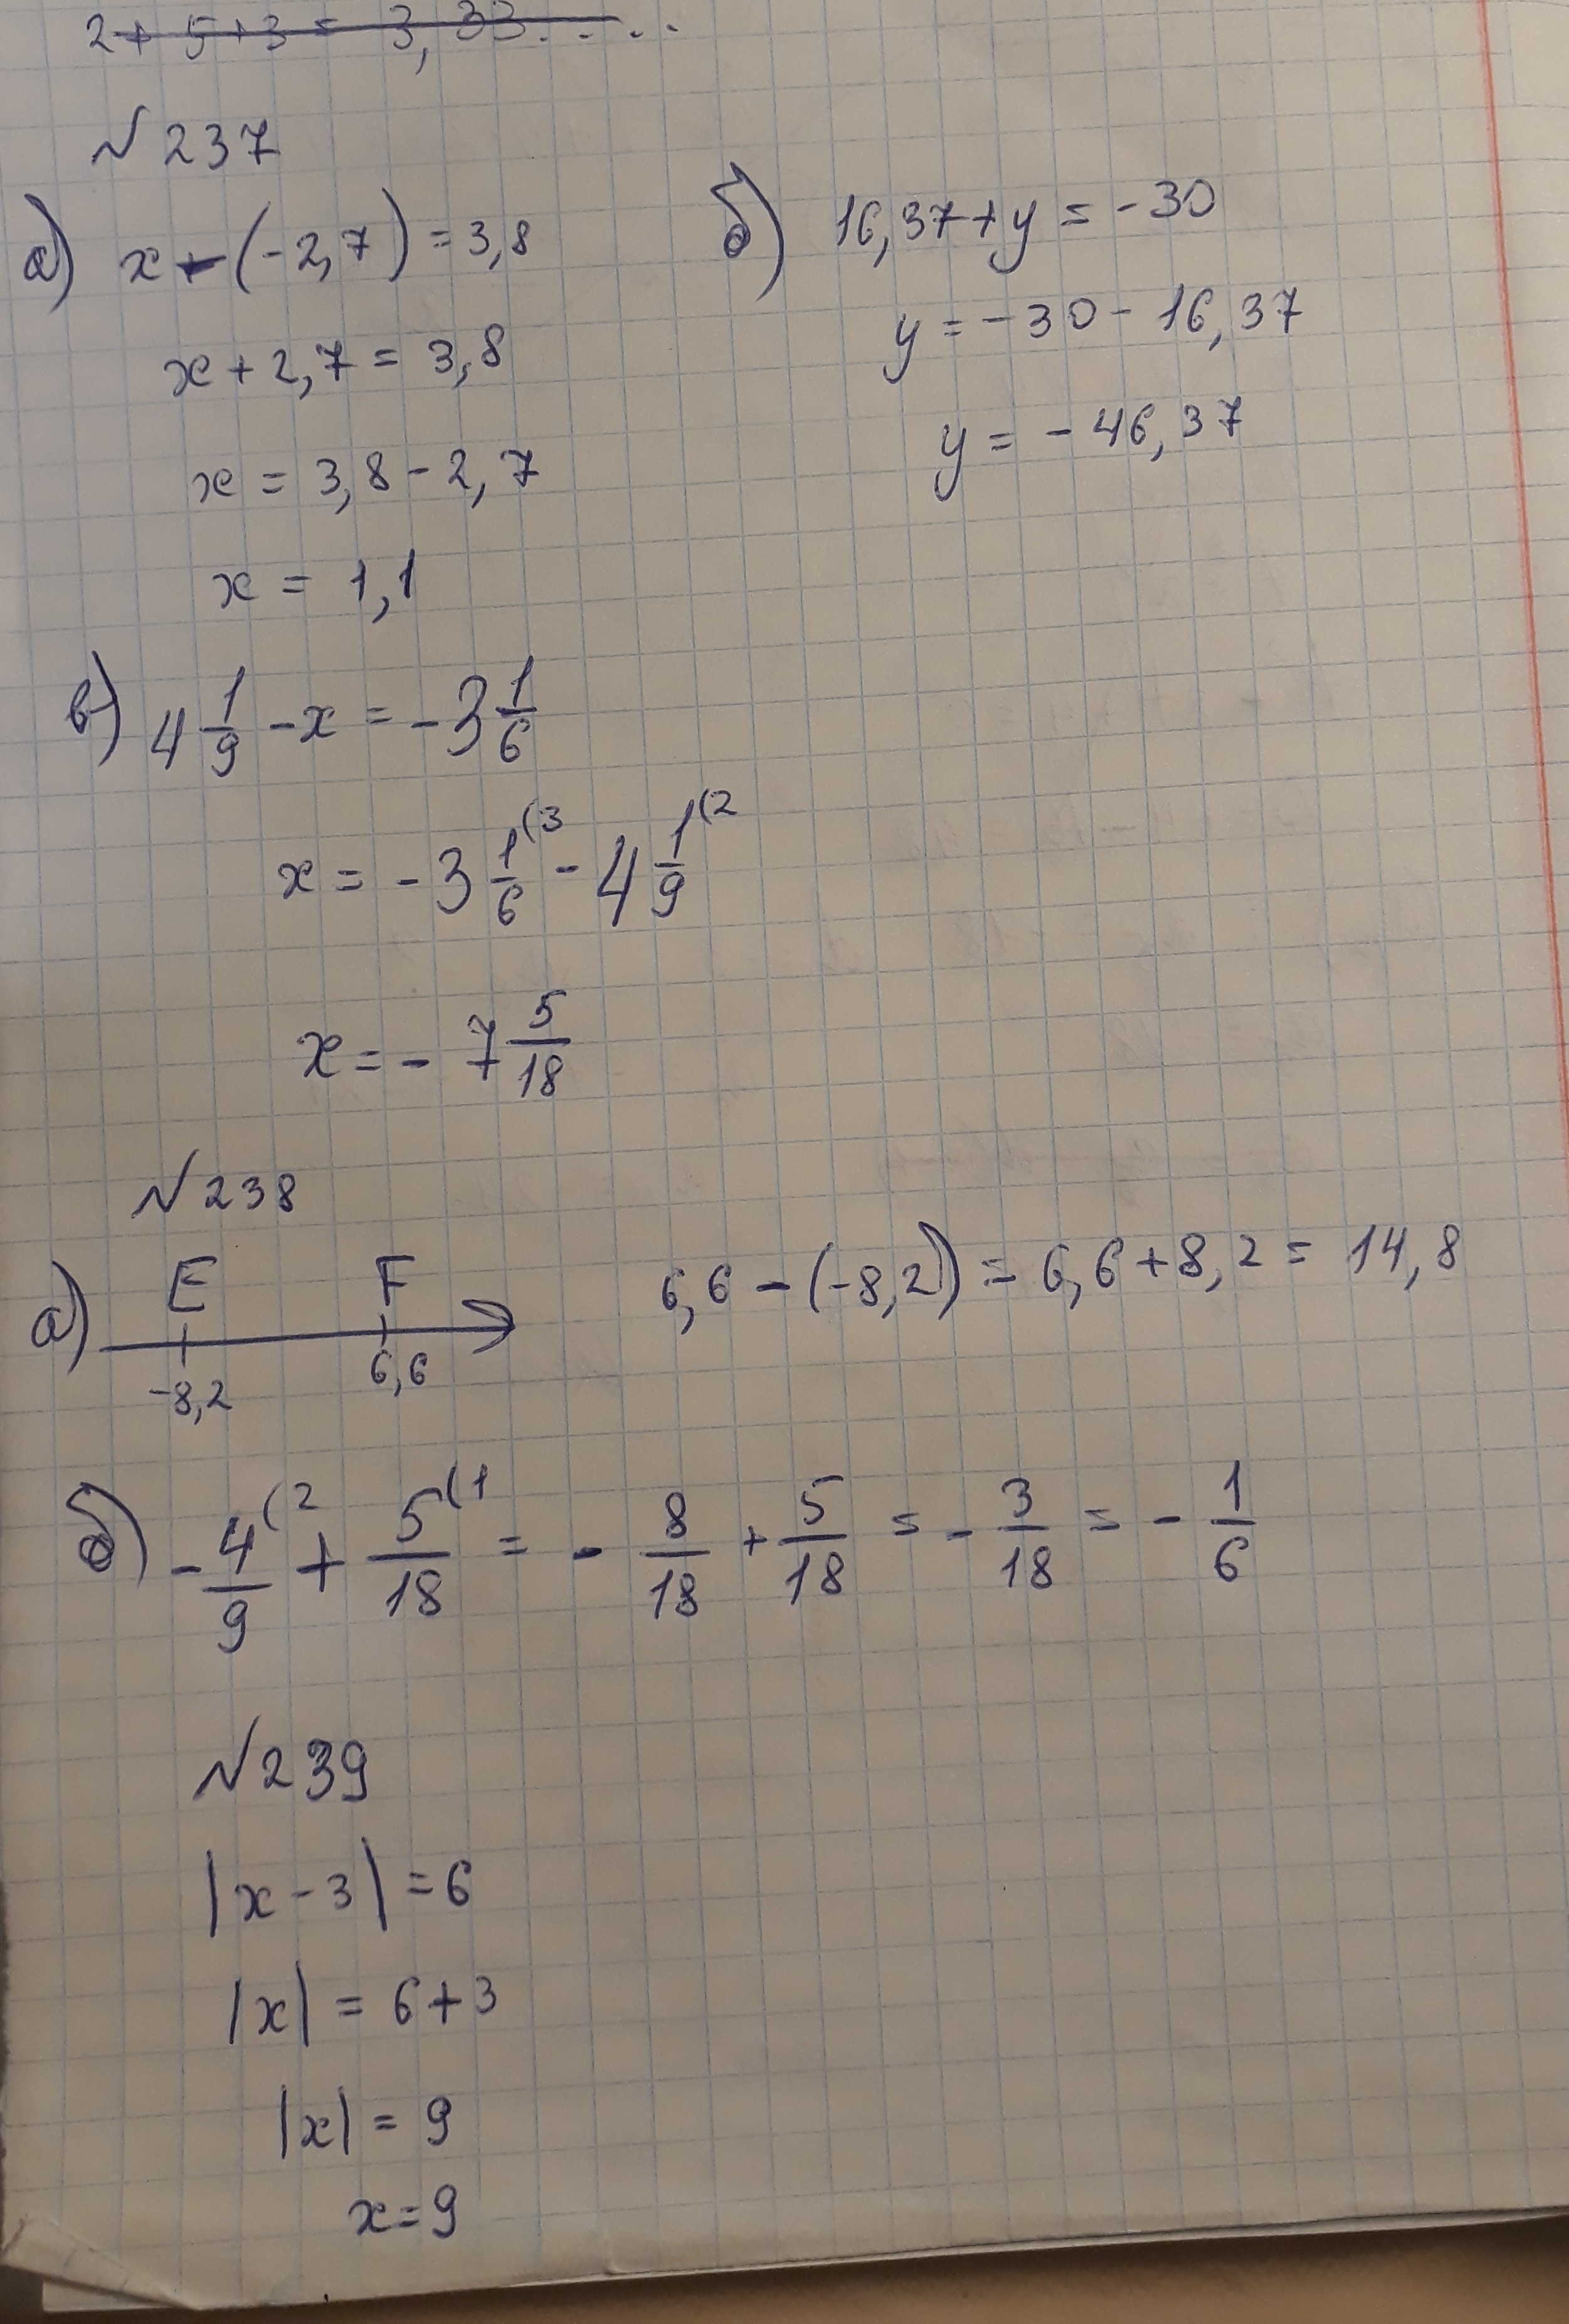 2+5+3= 3,33....
№ 237
а) x-(-2,7)=3,8
x+2,7=3,8
x=3,8-2,7
x=1,1
б) 16,37+y=-30
y=-30-16,37
y=-46,37
в) 4 1/9 -x=-3 1/6
x=-3 1/6 (3 -4 1/9 (2
x=-7 5/18
№238
а) E F
-8,2 6,6
6,6-(-8,2)=6,6+8,2=14,8
б) -4/9 (2 + 5/18 (1 = -8/18 + 5/18 = -3/18 = -1/6
№239
|x-3|=6
|x|=6+3
|x|=9
x=9